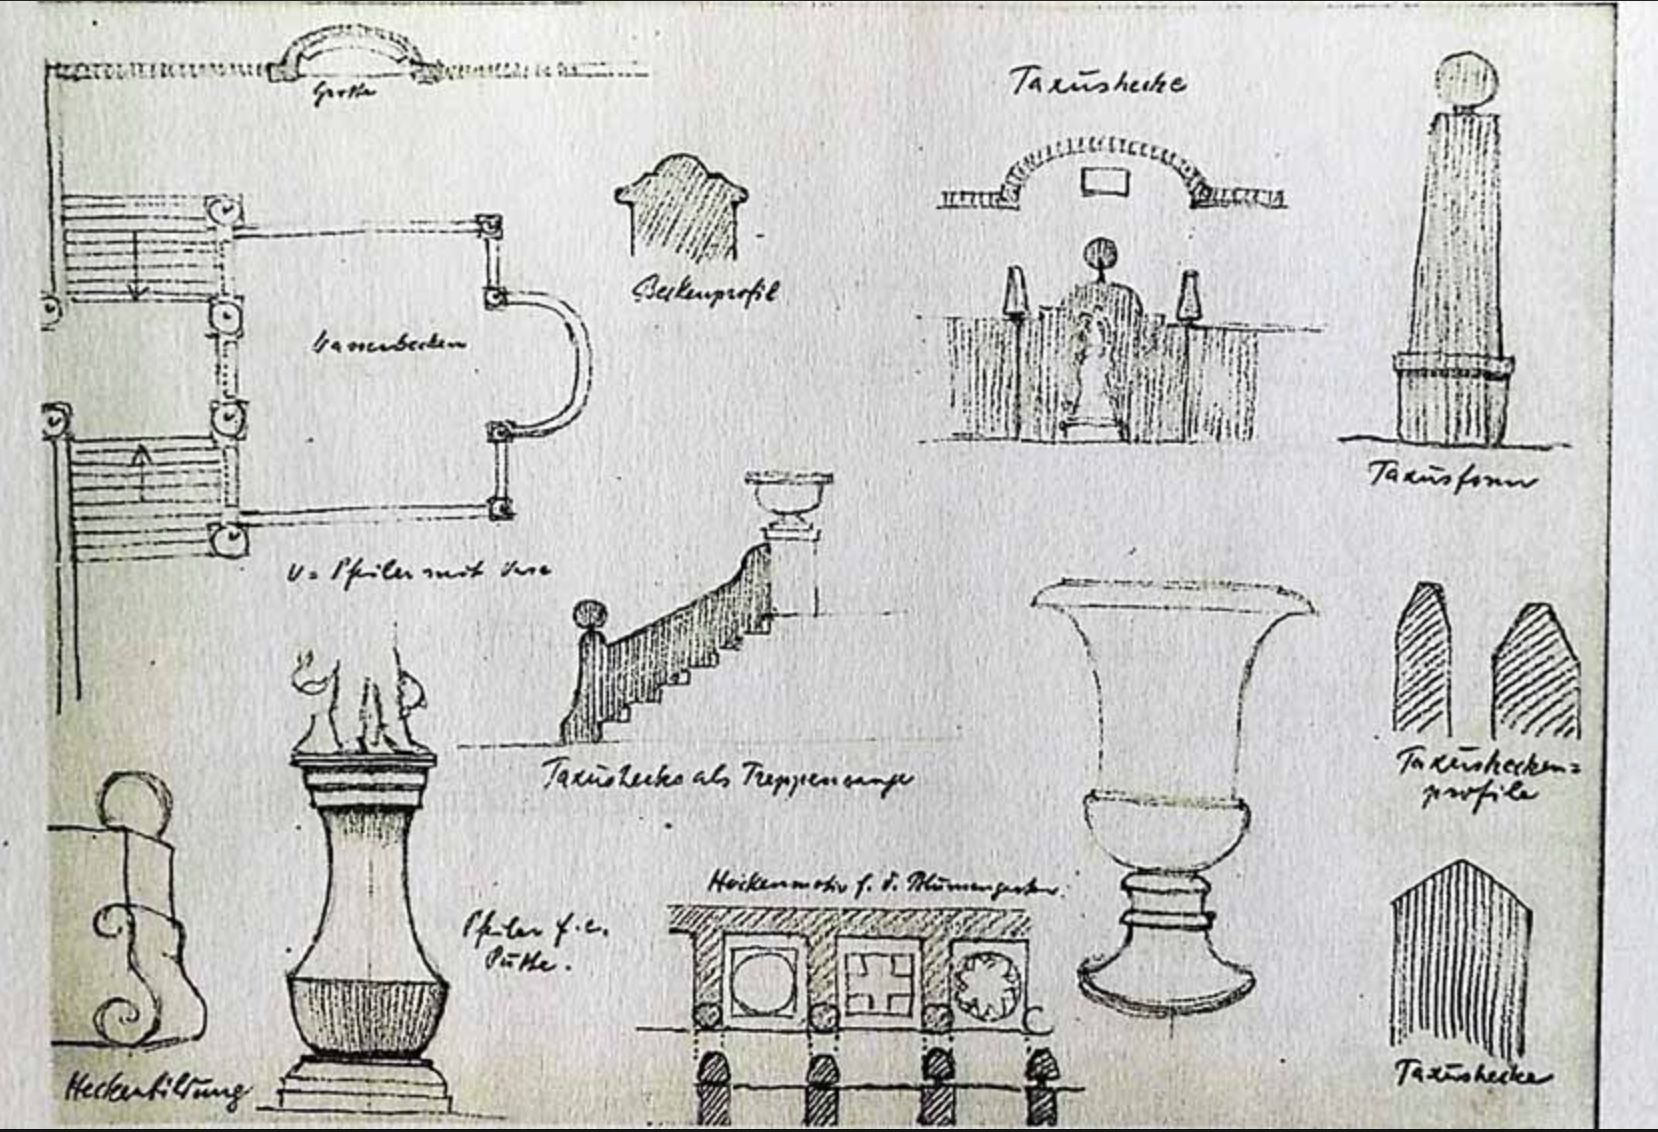 Grotte
Taxushecke
Beckenprofil
Wasserbecken
Taxusform
V = Pfeiler mit Vase
Taxushecken=
profile
Taxushecke als Treppenwange
Heckenmotiv f. d. Blumengarten.
Pfeiler f. e.
Putte.
Heckenbildung
Taxushecke